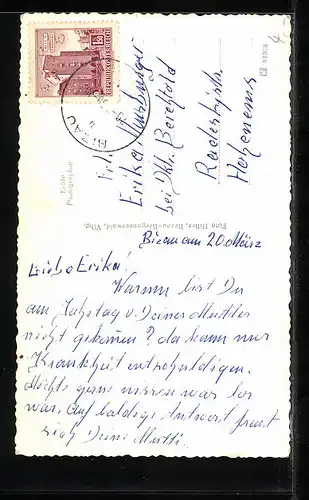 REPUBLIK ÖSTERREICH
BIZAU
Frl.
Erika
bei Dkt. Berchtold
Hohenems
Echte
Photographie
Foto Hiller, Bezau-Bregenzerwald, Vlbg.
Bizau am 20. März
Liebe Erika!
Warum bist Du
am Jahrstag v. Deiner Mutter
nicht gekommen? da kann nur
Krankheit entschuldigen.
Möchte gerne wissen was los
war. Auf baldige Antwort freut
sich Deine Mutti.